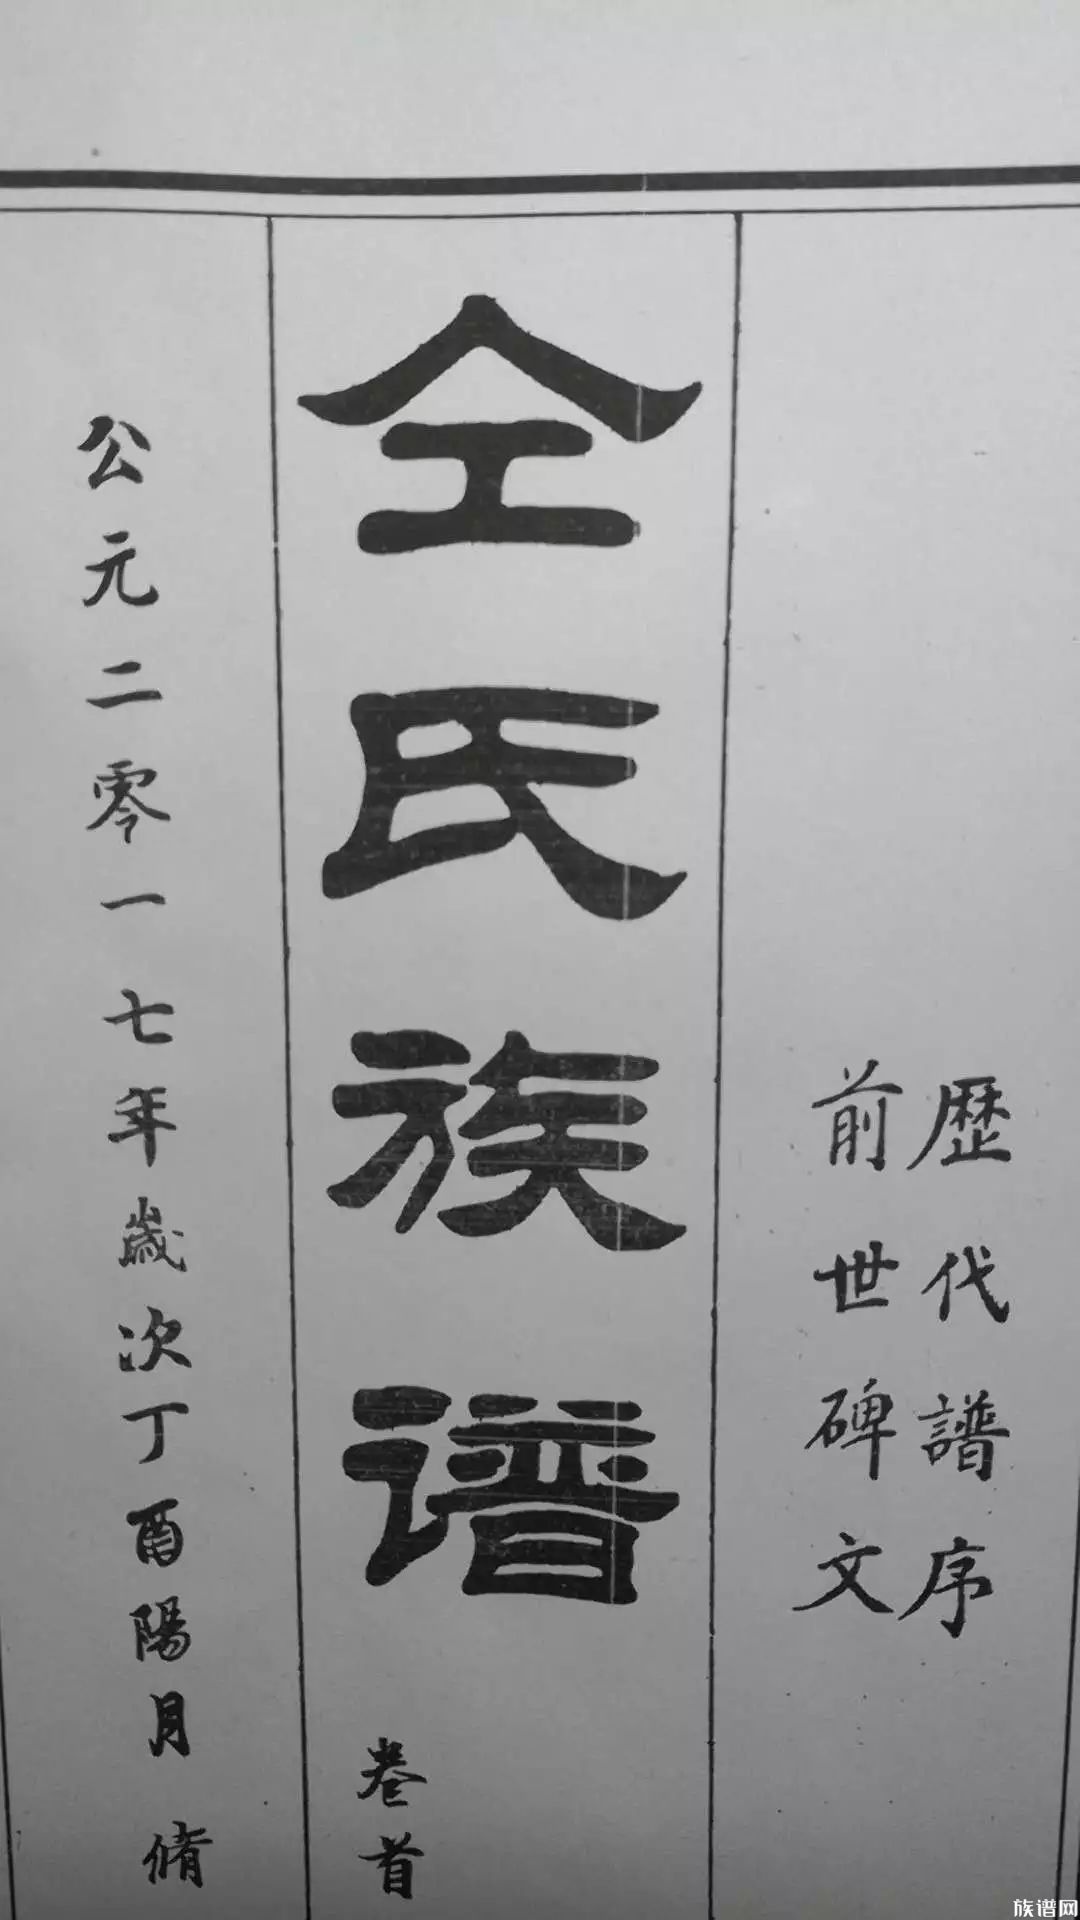 歷代譜序
前世碑文
仝氏族谱
卷首
公元二零一七年歲次丁酉陽月脩
族谱网